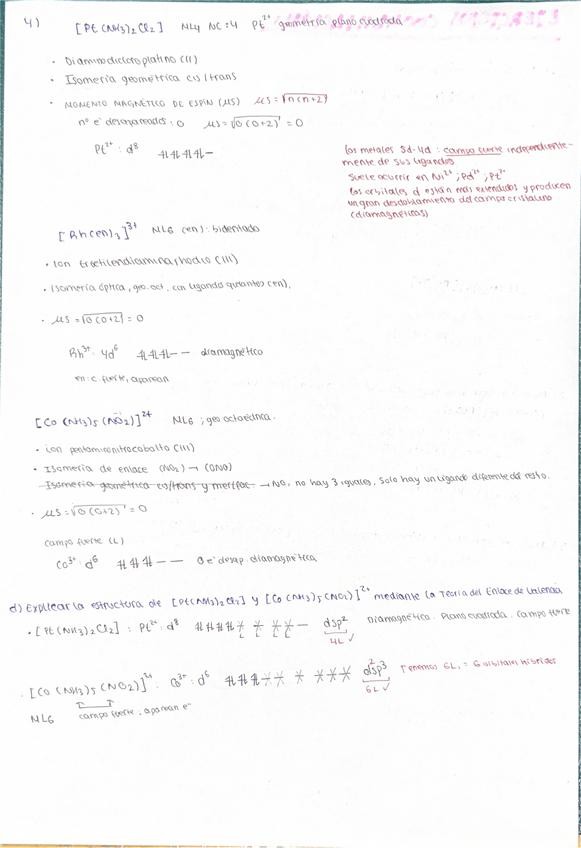 4) [Pt(NH3)2Cl2] NL4 NC=4 Pt²⁺ geometría plano cuadrada
• Diaminodicloroplatino (II)
• Isomería geométrica cis/trans
• MOMENTO MAGNÉTICO DE ESPÍN (μs) μs = √n(n+2)
nº e⁻ desapareados: 0 μs = √0(0+2) = 0
Pt²⁺: d⁸
Los metales 5d-4d: campo fuerte independiente-
mente de sus ligandos
Suele ocurrir en Ni²⁺; Pd²⁺; Pt²⁺
Los orbitales d están más extendidos y producen
un gran desdoblamiento del campo cristalino
(diamagnéticas)
[Rh(en)3]³⁺ NL6 (en): bidentado
• Ion
• Isomería óptica, geo. oct, con ligando quelantes (en),
• μs = √0(0+2) = 0
Rh³⁺: 4d⁶ diamagnético
en: c. fuerte, aparean
[Co(NH3)5(NO2)]²⁺ NL6; geo octaédrica.
• ion pentaminonitrocobalto (III)
• Isomería de enlace (NO2) → (ONO)
Isomería geométrica cis/trans y mer/fac → NO, no hay 3 iguales, solo hay un ligando diferente del resto.
• μs = √0(0+2) = 0
campo fuerte (L)
Co³⁺: d⁶ 0 e⁻ desap. diamagnética
d) Explicar la estructura de [Pt(NH3)2Cl2] y [Co(NH3)5(NO2)]²⁺ mediante la Teoría del Enlace de Valencia
• [Pt(NH3)2Cl2]: Pt²⁺: d⁸ dsp² Diamagnético. Plano cuadrada. Campo fuerte
4L ✓
• [Co(NH3)5(NO2)]²⁺: Co³⁺: d⁶ d²sp³ Tenemos 6L, = 6 orbitales híbridos
6L ✓
NL6 campo fuerte, aparean e⁻